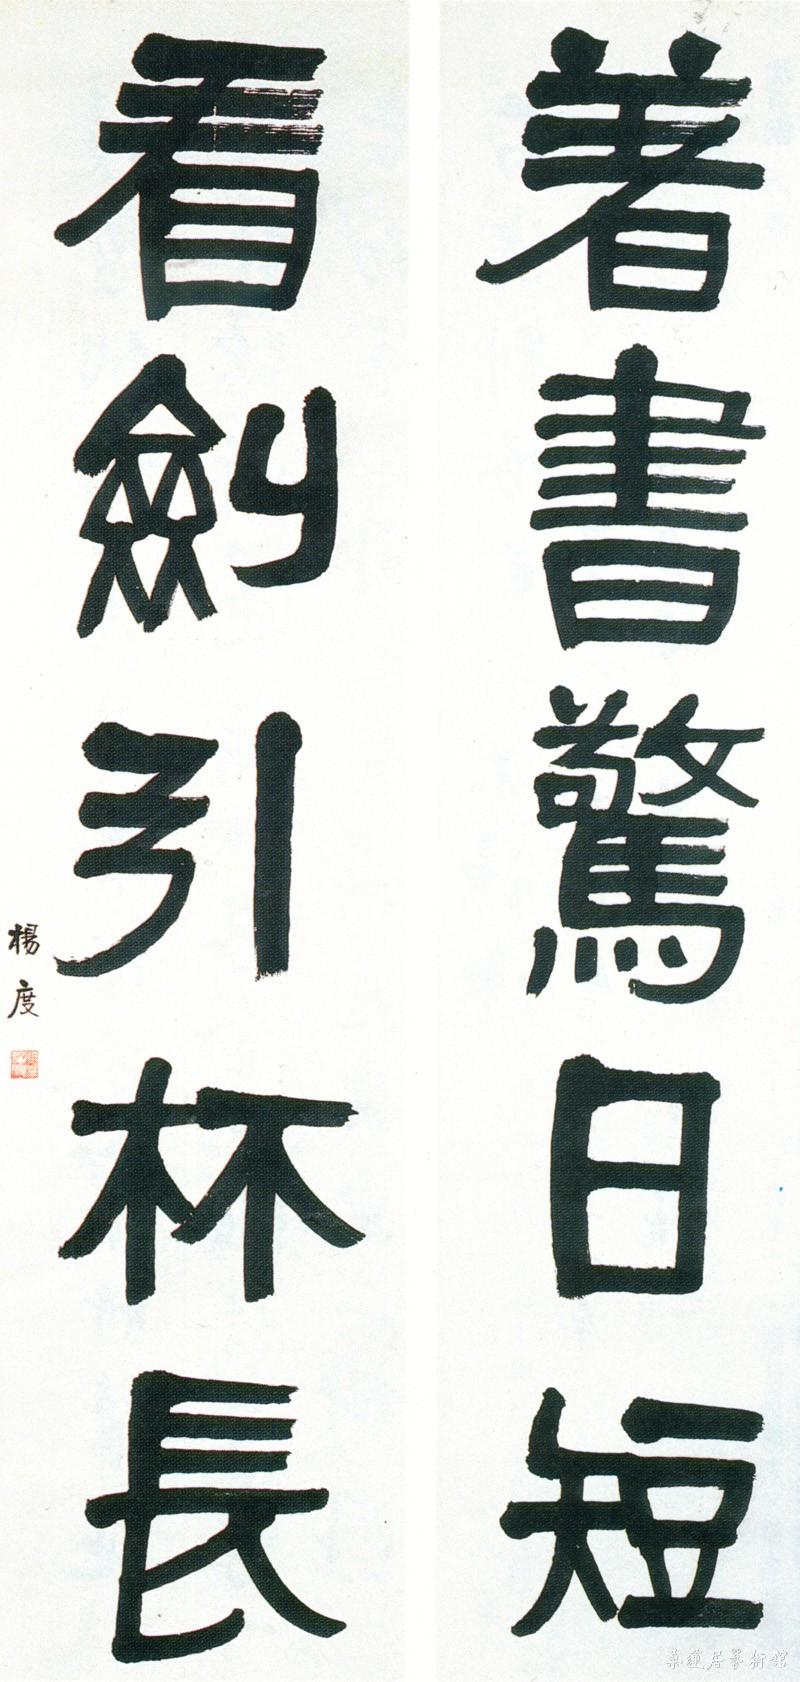 著書驚日短
看劍引杯長
楊度